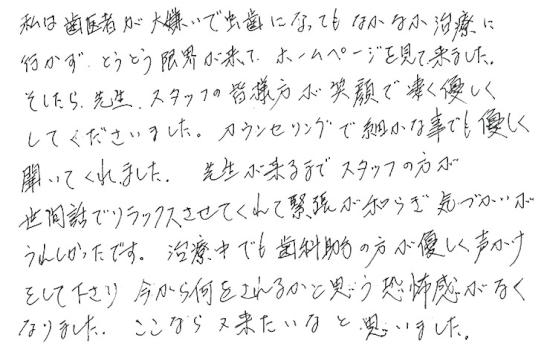 私は歯医者が大嫌いで虫歯になってもなかなか治療に
行かず、とうとう限界が来て、ホームページを見て来ました。
そしたら、先生、スタッフの皆様方が笑顔で凄く優しく
してくださいました。カウンセリングで細かな事でも優しく
聞いてくれました。 先生が来るまでスタッフの方が
世間話でリラックスさせてくれて緊張が和らぎ気づかいが
うれしかったです。治療中でも歯科助手の方が優しく声かけ
をして下さり 今から何をされるかと思う恐怖感がなく
なりました。 ここなら又来たいなと思いました。